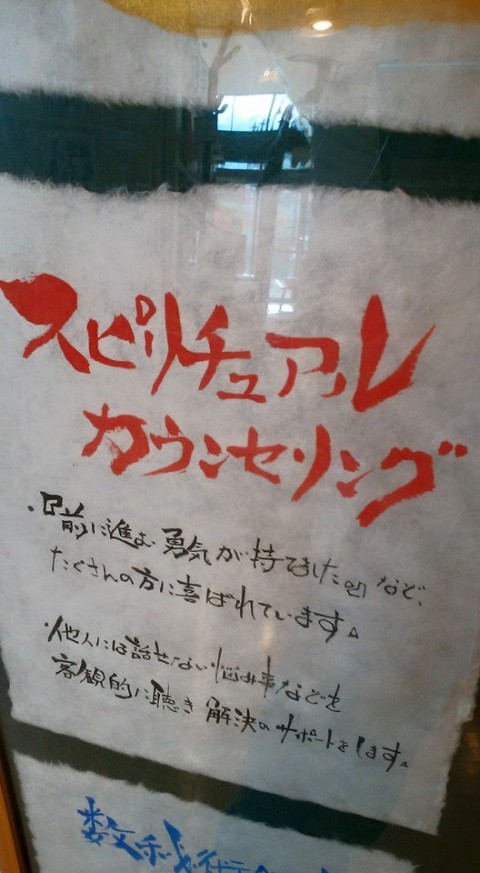 スピリチュアル
カウンセリング
・『前に進む勇気が持てました。』など、
たくさんの方に喜ばれています。
・他人には話せない悩み事などを
客観的に聴き解決のサポートをします。
数秘